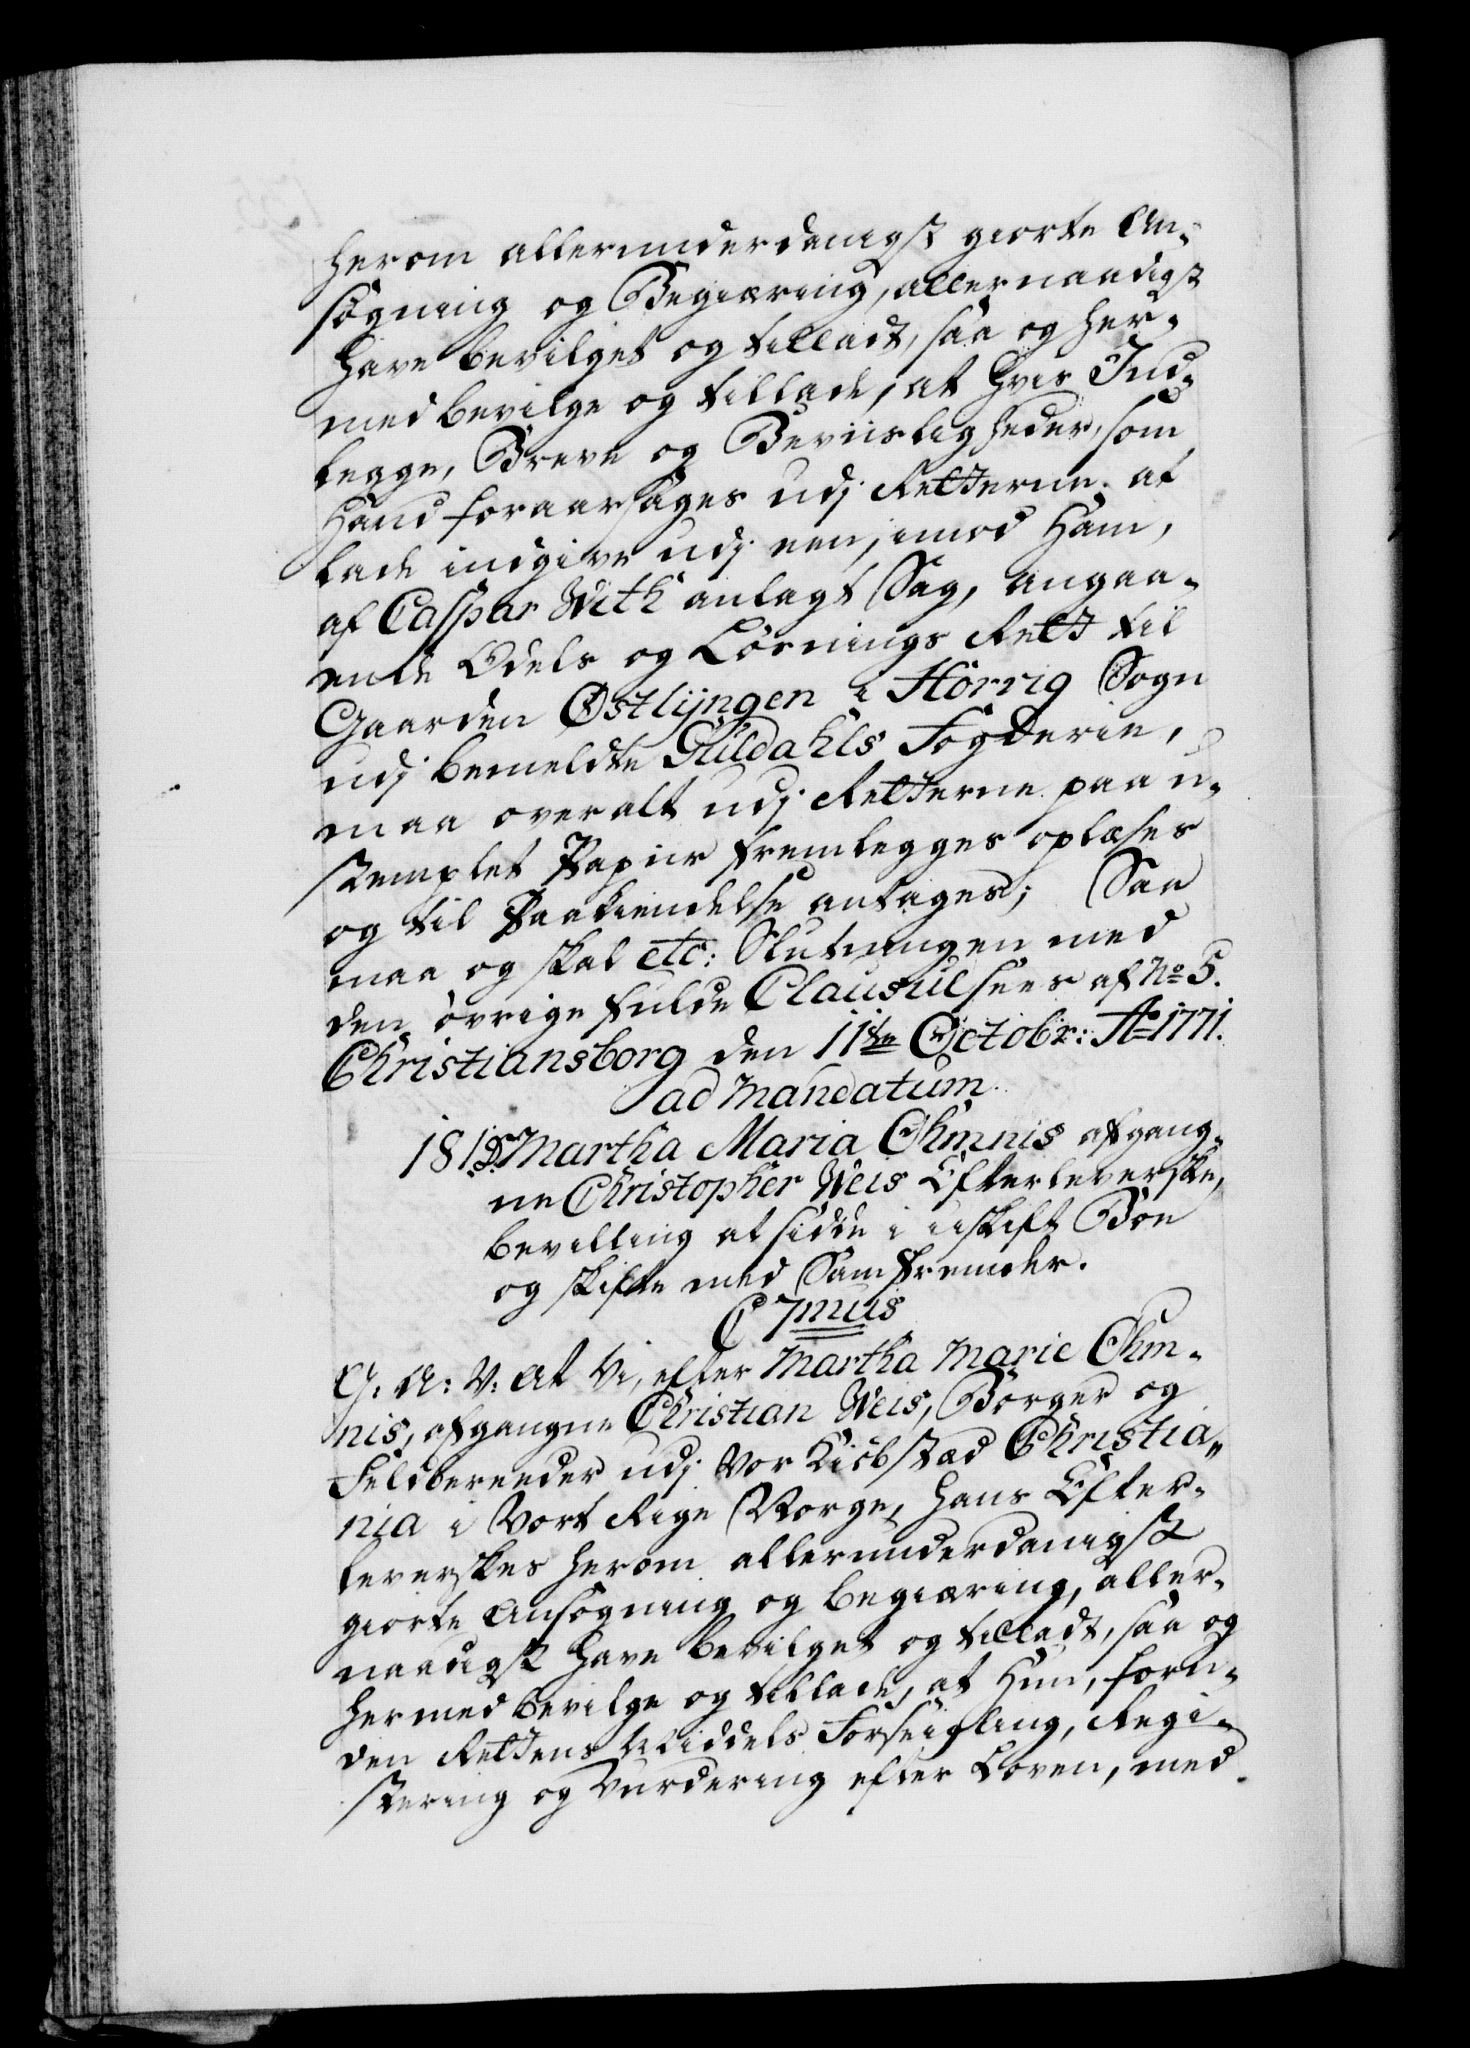 herom allerunderdanigst giorte An-
søgning og Begiæring, allernaadigst
have bevilget og tilladt, saa og her-
med bevilge og tillade, at hvis Ind-
legge, Breve og Beviisligheder, som
Hand foraarsages udj Retterne at
lade indgive udj een, imod Ham,
af Casper With anlagt Sag, angaa-
ende Odels og Løsnings Rett til
Gaarden Østlijngen i Hörrig Sogn
udj bemeldte Guldahls Fogderie,
maa overalt udj Retterne paa u-
stemplet Papiir fremlegges oplæses
og til Paakiendelse antages; Saa
maa og skal etc: Slutningen med
den øvrige fulde Clausul sees af No 5.
Christiansborg den 11te Octobr: Ao 1771.
ad Mandatum
181. Martha Maria Ohmnis afgang-
ne Christopher Weis Efterleverske,
bevilling at sidde i uskift Boe
og skifte med Samfrender.
C 7mus
G. A: V: At Vi, efter Martha Marie Ohm-
nis, afgangne Christian Weis, Borger og
Feldbereeder udj Vor Kiøbstad Christia-
nia i Vort Rige Norge, hans Efter-
leverskes herom allerunderdanigst
giorte Ansøgning og begiæring, aller-
naadigst have bevilget og tilladt, saa og
hermed bevilge og tillade, at Hun, foru-
den Rettens Middels Forseigling, Regi-
stering og Vurdering efter Loven, med